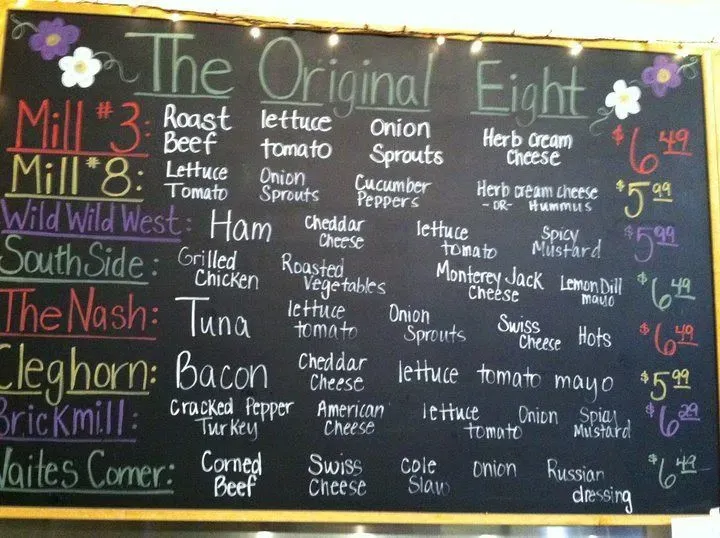 The Original Eight
Mill #3: Roast Beef lettuce tomato Onion Sprouts Herb Cream Cheese $6.49
Mill #8: Lettuce Tomato Onion Sprouts Cucumber Peppers Herb cream cheese -OR- Hummus $5.99
Wild Wild West: Ham Cheddar Cheese lettuce tomato Spicy Mustard $5.99
South Side: Grilled Chicken Roasted Vegetables Monterey Jack Cheese Lemon Dill mayo $6.49
The Nash: Tuna lettuce tomato Onion Sprouts Swiss Cheese Hots $6.49
Cleghorn: Bacon Cheddar Cheese lettuce tomato mayo $5.99
Brickmill: Cracked Pepper Turkey American Cheese lettuce tomato Onion Spicy Mustard $6.29
Waites Corner: Corned Beef Swiss Cheese Cole Slaw onion Russian dressing $6.49